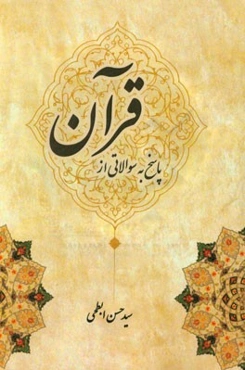 قرآن
پاسخ به سوالاتی از
سید حسن ابطحی